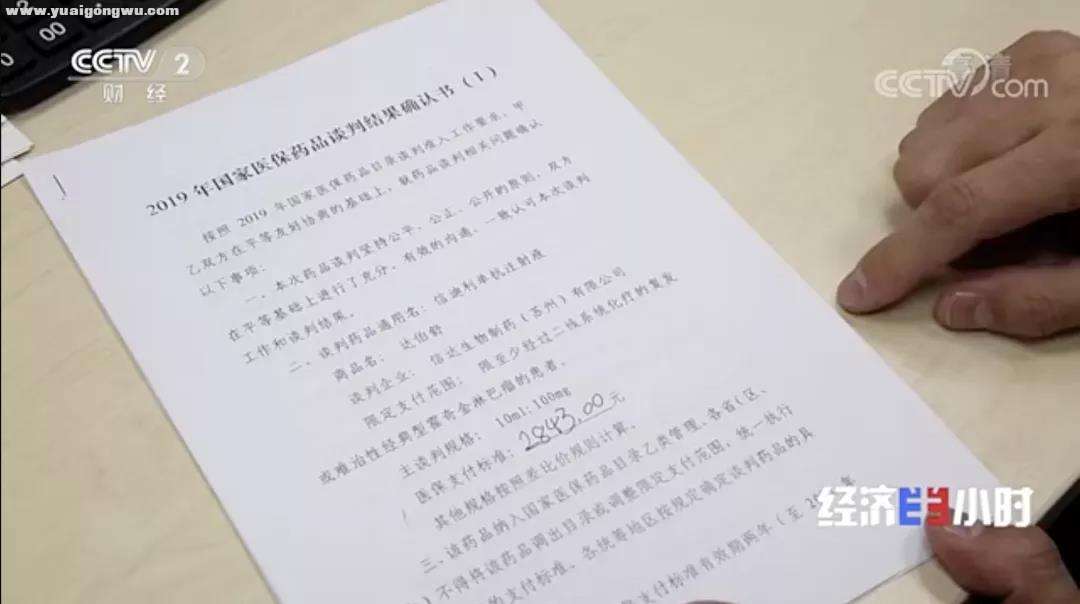 www.yuaigongwu.com
00
CCTV 2
财经
CCTV.com
高清
2019 年国家医保药品谈判结果确认书（1）
按照 2019 年国家医保药品目录谈判准入工作要求，甲
乙双方在平等友好协商的基础上，就药品谈判相关问题确认
以下事项：
一、本次药品谈判坚持公平、公正、公开的原则，双方
在平等基础上进行了充分、有效的沟通，一致认可本次谈判
工作和谈判结果。
二、谈判药品通用名：信迪利单抗注射液
商品名：达伯舒
谈判企业：信达生物制药（苏州）有限公司
限定支付范围：限至少经过二线系统化疗的复发
或难治性经典型霍奇金淋巴瘤的患者。
主谈判规格：10ml:100mg
医保支付标准：2843.00元
其他规格按照差比价规则计算。
三、该药品纳入国家医保药品目录乙类管理。各省（区、
）不得将该药品调出目录或调整限定支付范围，统一执行
的支付标准。各统筹地区按规定确定谈判药品的具
支付标准有效期两年（至 2
年
经济半小时